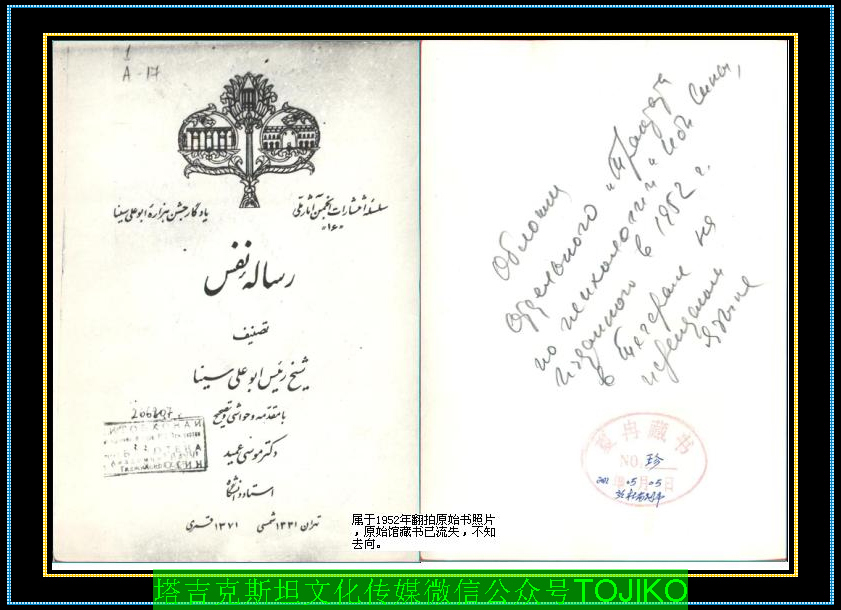 1
A-17
سلسلهٔ انتشارات انجمن آثار ملی
«۱۶»
یادگار جشن هزارهٔ ابوعلی سینا
رسالهٔ نفس
تصنیف
شیخ رئیس ابوعلی سینا
با مقدمه و حواشی و تصحیح
دکتر موسی عمید
استاد دانشگاه
تهران ۱۳۳۱ شمسی ۱۳۷۱ قمری
206807
Обложки
отдельного "Трактата
по психологии" Ибн Сины,
изданного в 1952 г.
в Тегеране на
персидском
языке
藏书
NO. 珍
05月05日
属于1952年翻拍原始书照片
，原始馆藏书已流失，不知
去向。
塔吉克斯坦文化传媒微信公众号TOJIKO